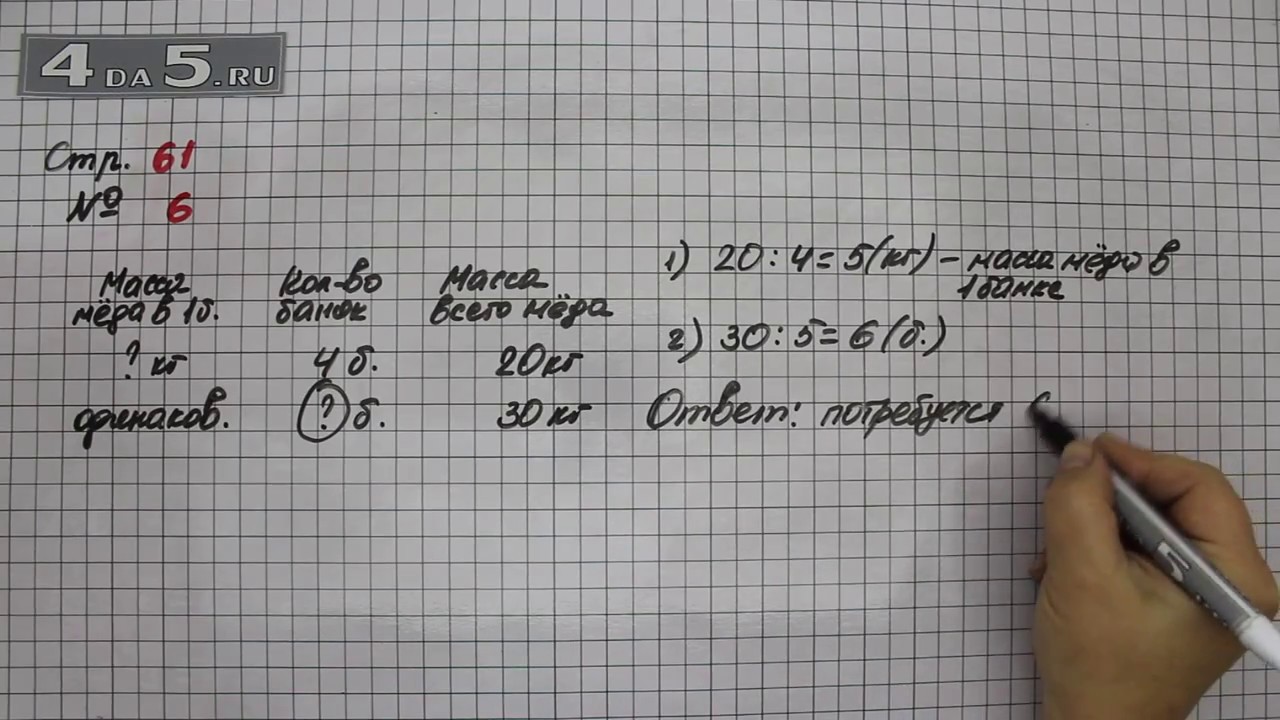 4 DA 5.RU
Стр. 61
№ 6
Масса мёда в 1б. Кол-во банок Масса всего мёда
? кг 4 б. 20 кг
одинаков. ? б. 30 кг
1) 20 : 4 = 5 (кг) – масса мёда в
1 банке
2) 30 : 5 = 6 (б.)
Ответ: потребуется
5